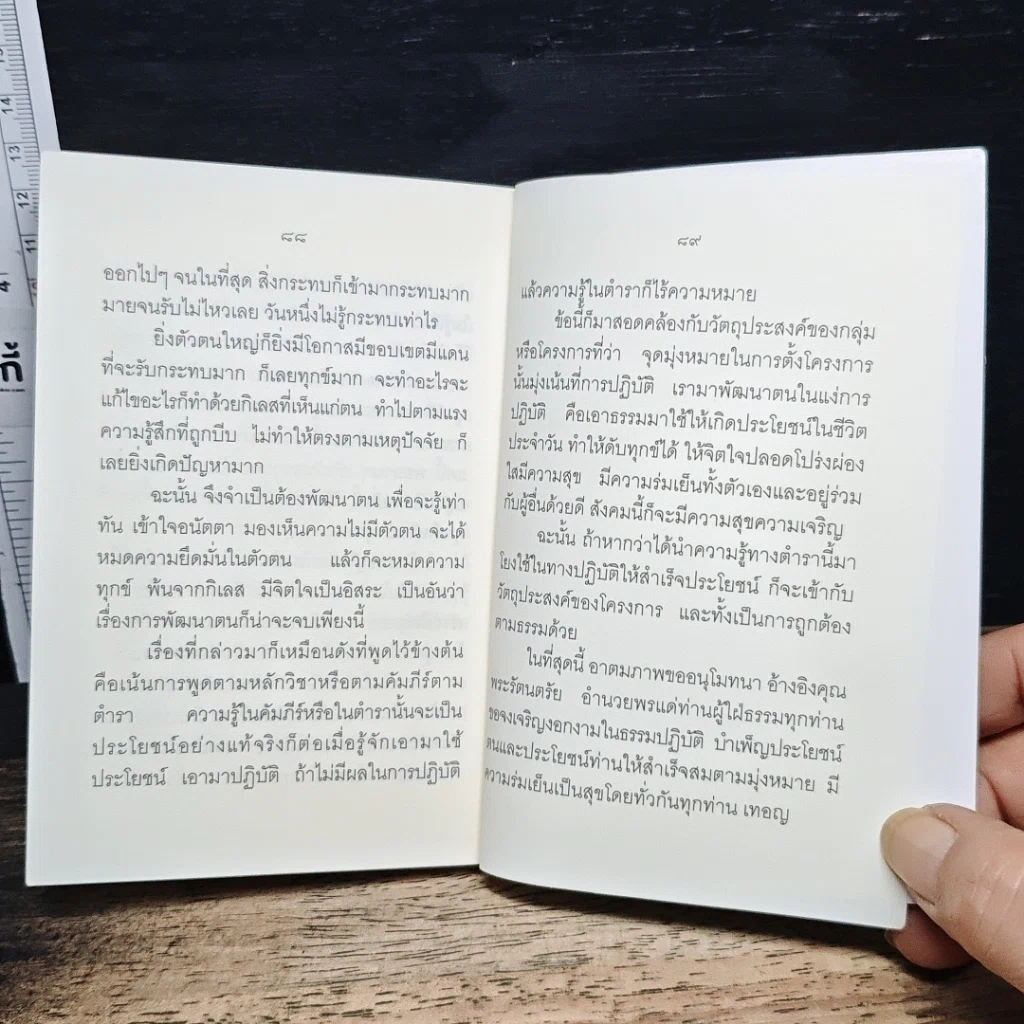 ๘๘
ออกไปๆ จนในที่สุด สิ่งกระทบก็เข้ามากระทบมาก
มายจนรับไม่ไหวเลย วันหนึ่งไม่รู้กระทบเท่าไร
ยิ่งตัวตนใหญ่ก็ยิ่งมีโอกาสมีขอบเขตมีแดน
ที่จะรับกระทบมาก ก็เลยทุกข์มาก จะทำอะไรจะ
แก้ไขอะไรก็ทำด้วยกิเลสที่เห็นแก่ตน ทำไปตามแรง
ความรู้สึกที่ถูกบีบ ไม่ทำให้ตรงตามเหตุปัจจัย ก็
เลยยิ่งเกิดปัญหามาก
ฉะนั้น จึงจำเป็นต้องพัฒนาตน เพื่อจะรู้เท่า
ทัน เข้าใจอนัตตา มองเห็นความไม่มีตัวตน จะได้
หมดความยึดมั่นในตัวตน แล้วก็จะหมดความ
ทุกข์ พ้นจากกิเลส มีจิตใจเป็นอิสระ เป็นอันว่า
เรื่องการพัฒนาตนก็น่าจะจบเพียงนี้
เรื่องที่กล่าวมาก็เหมือนดังที่พูดไว้ข้างต้น
คือเน้นการพูดตามหลักวิชาหรือตามคัมภีร์ตาม
ตำรา ความรู้ในคัมภีร์หรือในตำรานั้นจะเป็น
ประโยชน์อย่างแท้จริงก็ต่อเมื่อรู้จักเอามาใช้
ประโยชน์ เอามาปฏิบัติ ถ้าไม่มีผลในการปฏิบัติ
๘๙
แล้วความรู้ในตำราก็ไร้ความหมาย
ข้อนี้ก็มาสอดคล้องกับวัตถุประสงค์ของกลุ่ม
หรือโครงการที่ว่า จุดมุ่งหมายในการตั้งโครงการ
นั้นมุ่งเน้นที่การปฏิบัติ เรามาพัฒนาตนในแง่การ
ปฏิบัติ คือเอาธรรมมาใช้ให้เกิดประโยชน์ในชีวิต
ประจำวัน ทำให้ดับทุกข์ได้ ให้จิตใจปลอดโปร่งผ่อง
ใสมีความสุข มีความร่มเย็นทั้งตัวเองและอยู่ร่วม
กับผู้อื่นด้วยดี สังคมนี้ก็จะมีความสุขความเจริญ
ฉะนั้น ถ้าหากว่าได้นำความรู้ทางตำรานี้มา
โยงใช้ในทางปฏิบัติให้สำเร็จประโยชน์ ก็จะเข้ากับ
วัตถุประสงค์ของโครงการ และทั้งเป็นการถูกต้อง
ตามธรรมด้วย
ในที่สุดนี้ อาตมภาพขออนุโมทนา อ้างอิงคุณ
พระรัตนตรัย อำนวยพรแด่ท่านผู้ใฝ่ธรรมทุกท่าน
ขอจงเจริญงอกงามในธรรมปฏิบัติ บำเพ็ญประโยชน์
ตนและประโยชน์ท่านให้สำเร็จสมตามมุ่งหมาย มี
ความร่มเย็นเป็นสุขโดยทั่วกันทุกท่าน เทอญ
14
13
12
11